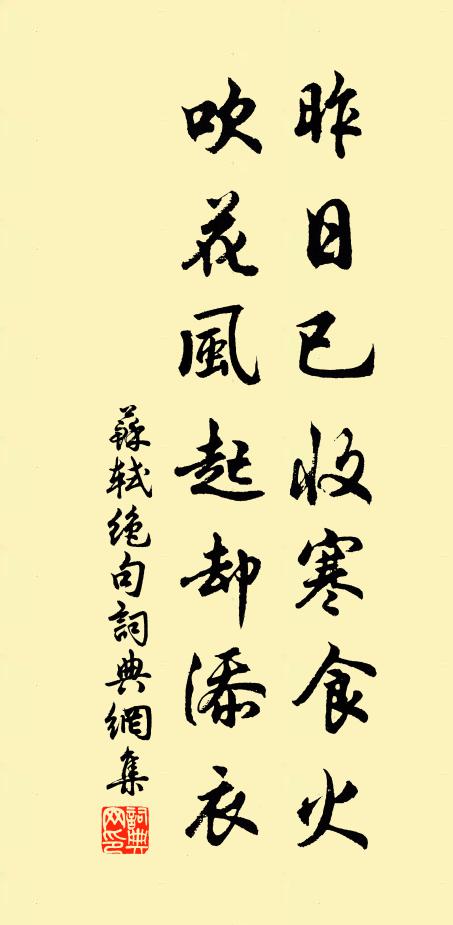 昨日已收寒食火
吹花風起却添衣
蘇軾絶句詞典網集
詞典網印